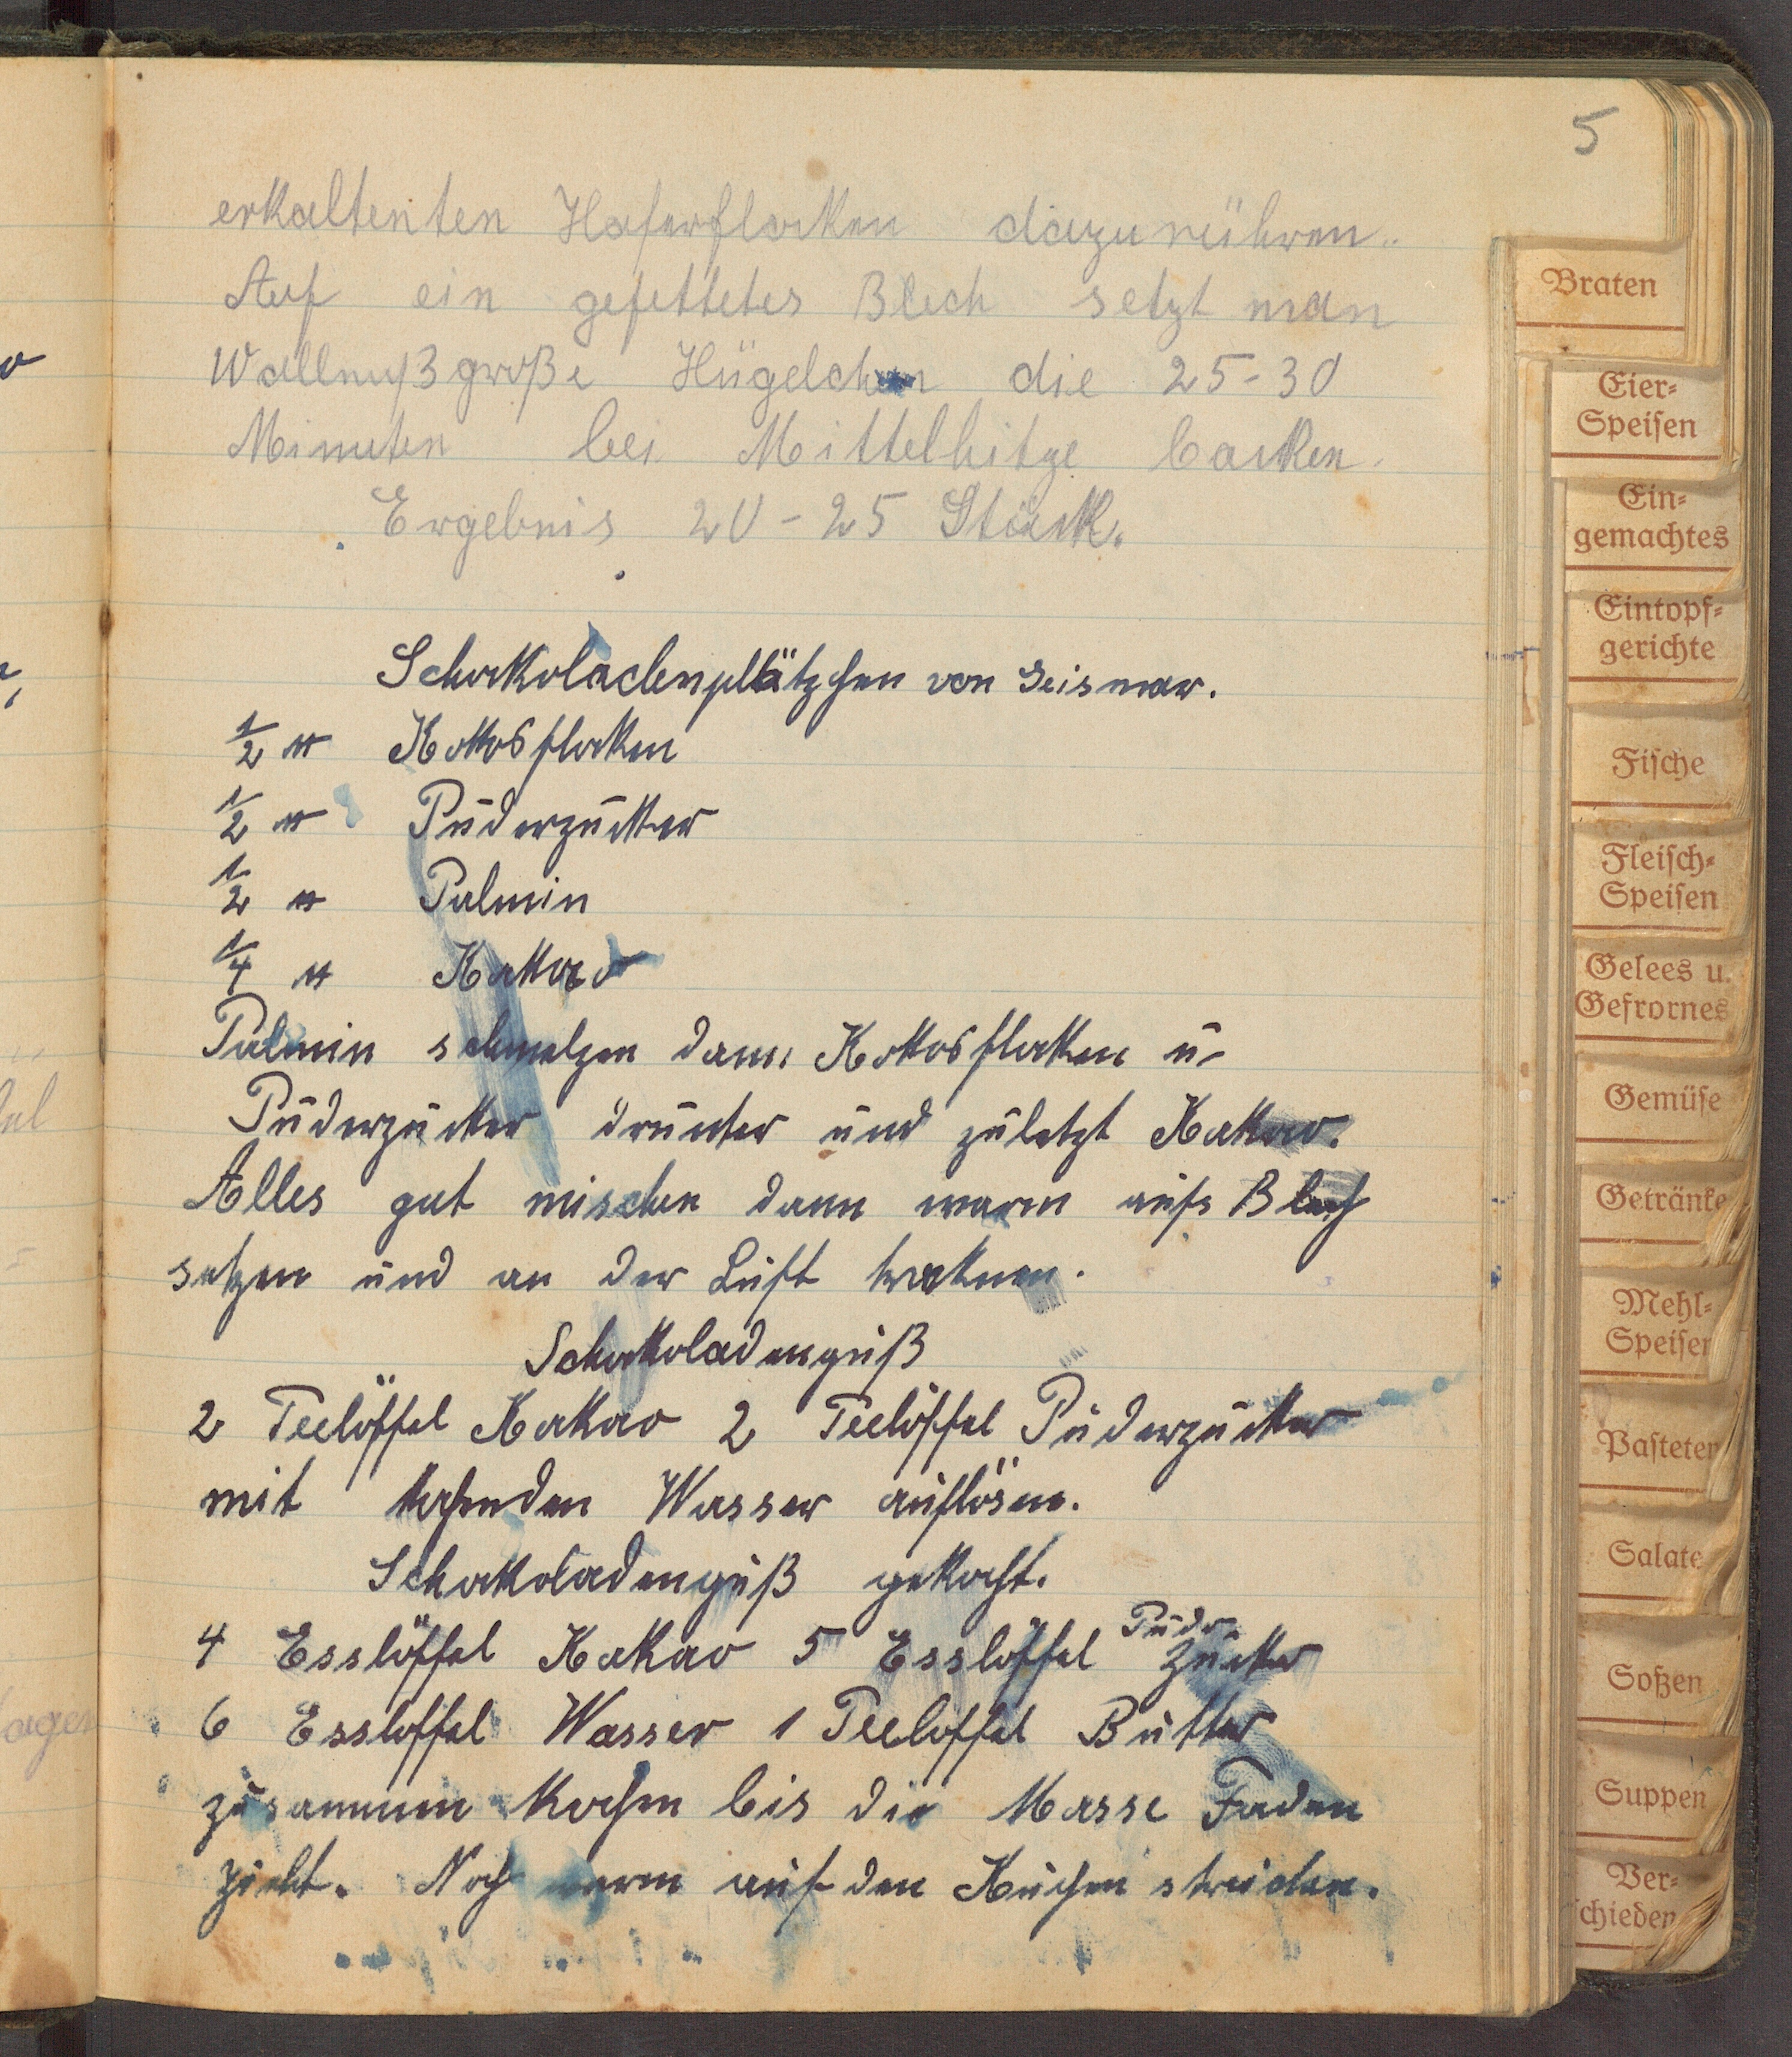 5
erkaltenten Haferflocken dazurühren.
Auf ein gefettetes Blech setzt man
Wallnußgroße Hügelchen die 25-30
Minuten bei Mittelhitze backen.
Ergebnis 20-25 Stück.
Schokoladenplätzchen von Geismar.
1/2 ℔ Kokosflocken
1/2 ℔ Puderzucker
1/2 ℔ Palmin
1/4 ℔ Kakao
Palmin schmelzen dann Kokosflocken u
Puderzucker drunter und zuletzt Kakao.
Alles gut mischen dann warm aufs Blech
setzen und an der Luft trocknen.
Schokoladenguß
2 Teelöffel Kakao 2 Teelöffel Puderzucker
mit kochenden Wasser auflösen.
Schokoladenguß gekocht.
4 Esslöffel Kakao 5 Esslöffel Puderzucker
6 Esslöffel Wasser 1 Teelöffel Butter
zusammen kochen bis die Masse Faden
zieht. Noch warm auf den Kuchen streichen.
Braten
Eier-
Speisen
Ein-
gemachtes
Eintopf-
gerichte
Fische
Fleisch-
Speisen
Gelees u.
Gefrornes
Gemüse
Getränke
Mehl-
Speisen
Pasteten
Salate
Soßen
Suppen
Ver-
schieden